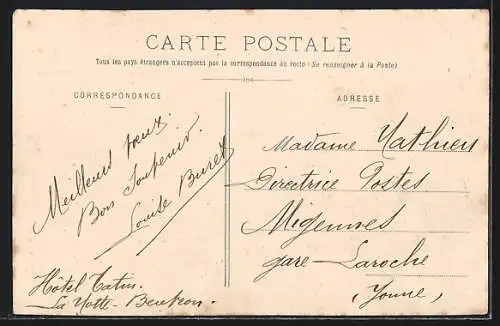 CARTE POSTALE
Tous les pays étrangers n'acceptent pas la correspondance au recto (Se renseigner à la Poste)
CORRESPONDANCE
Meilleurs vœux.
Bon Souvenir.
Louise Buret
Hôtel Tatin.
La Motte-Beuvron.
ADRESSE
Madame Mathieu
Directrice Postes
Migennes
gare-Laroche
(Yonne)